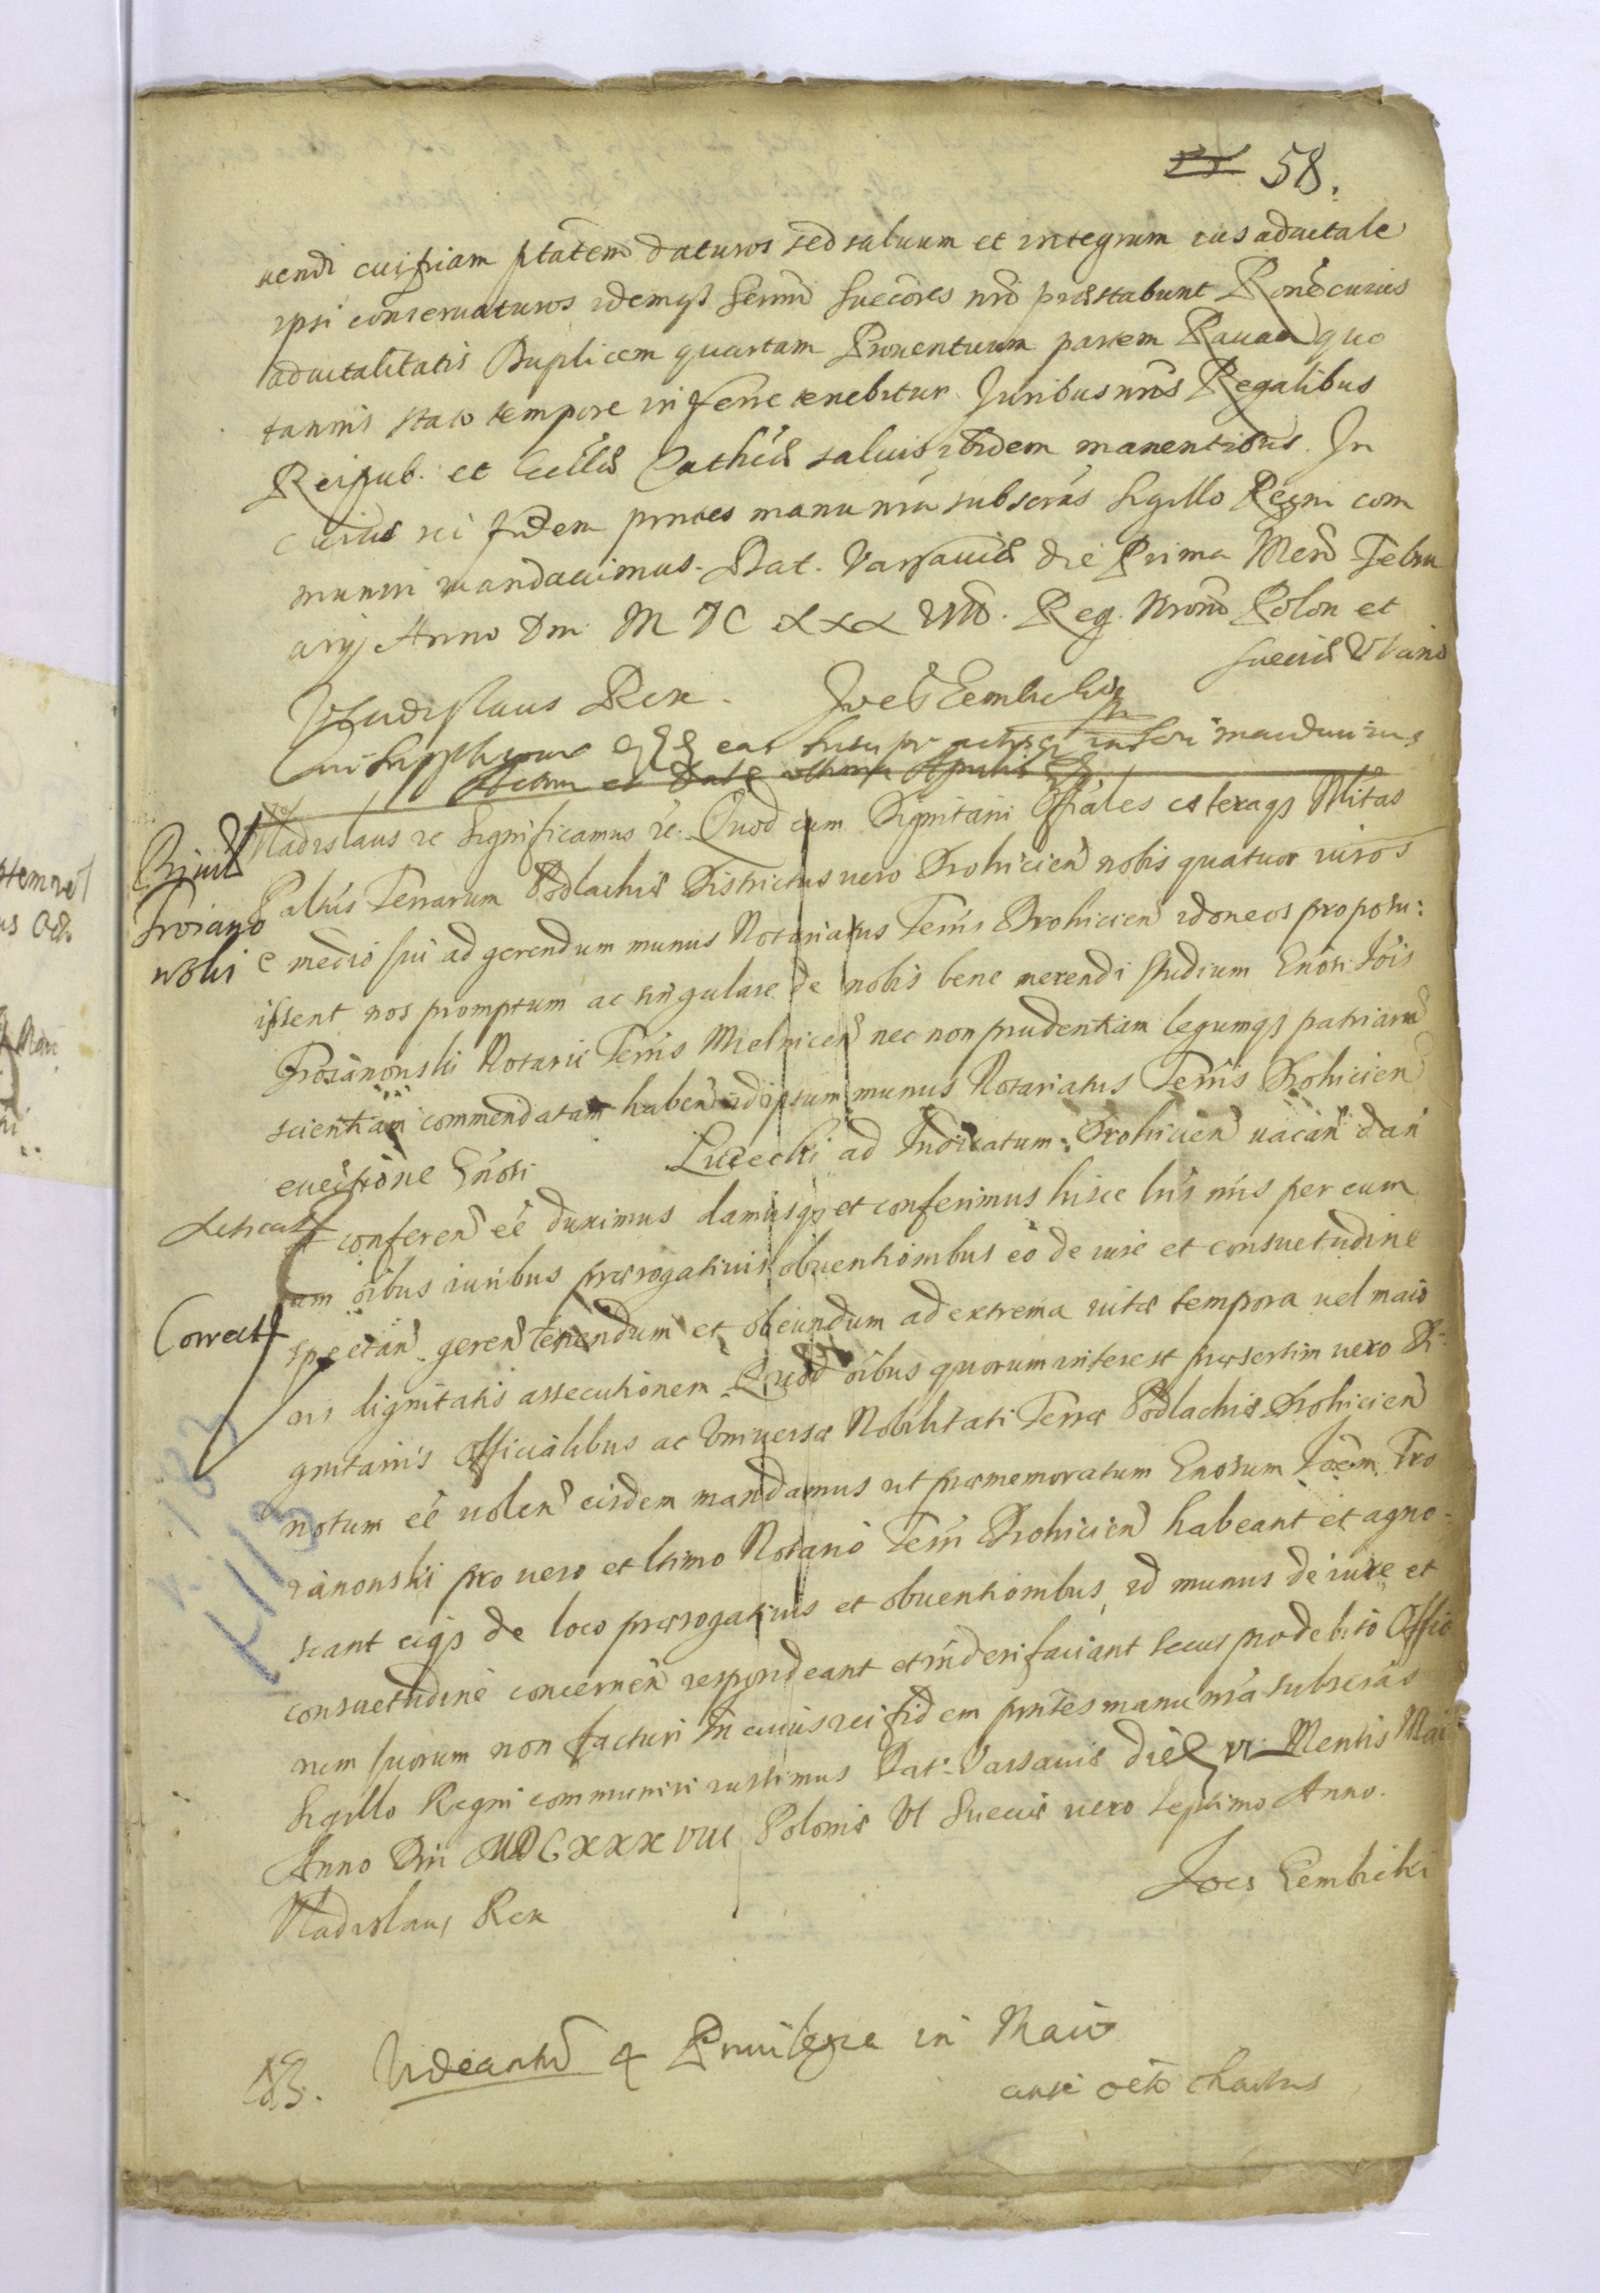 58.
uendi cuipiam ptatem daturos sed saluum et integrum ius aduitale
ipsi conseruaturos idemqs Sermi Succores nri prestabunt Rone cuius
aduitalitatis Duplicem quartam Prouentuum partem Rauam quo
tannis stato tempore inferre tenebitur Juribus nris Regalibus
Reipub. et Ecclis Cathcis saluis ibidem manentibus. In
cuius rei fidem pntes manu nra subscras Sigillo Regni com
muniri mandauimus. Dat. Varsauis die Prima Mens Febru
arij Anno Dni M DC XXX VIII. Reg. nrorum Polon et
Suecis
Vladislaus Rex.
Actum et Dat
Vladislaus rc Significamus rc. Quod cum Dignitarii Offiales ceteraqs Nlitas
Priuil
Troiano
wski
Palüs Terrarum Podlachis Districtus uero Drohicien nobis quatuor uiros
e medio sui ad gerendum munus Notariatus Terris Drohicien idoneos proposu:
issent nos promptum ac singulare de nobis bene merendi studium Gnosi Jois
Troianonski Notarii Terris Mielnicen nec non prudentiam legumqs patriarum
scientiam commendatam haben id ipsum munus Notariatus Terris Drohicien
euectione Gnosi Lucecki ad Judicatum Drohicien uacan dan
et conferen ee duximus damusqs et conferimus hisce lris nris per eum
cum oibus iuribus prerogatiuis obuentionibus eo de iure et consuetudine
Correct
spectan geren tenendum et obeundum ad extrema uite tempora uel maio
ris dignitatis assecutionem Quod oibus quorum interest presertim uero Di-
gnitariis Officialibus ac Vniuerse Nobilitati Terre Podlachie Drohicien
notum ee uolen eisdem mandamus ut prememoratum Gnosum Joem Tro
ianonski pro uero et ltimo Notario Terri Drohicien habeant et agno-
scant eiqs de loco prerogatiuis et obuentionibus id munus de iure et
consuetudine concernen respondeant et inderi faciant secus pro debito Offio
rum suorum non facturi In cuius rei fidem pntes manu nra subscras
Sigillo Regni communiri iussimus Dat: Varsauie die VI Mensis Maii
Anno Dni MDCXXXVIII Polonie VI Suecie uero Septimo Anno.
Vladislaus Rex
Joes Gembicki
NB. Videantur 4 Priuilegia in Maio
ante octo chartas